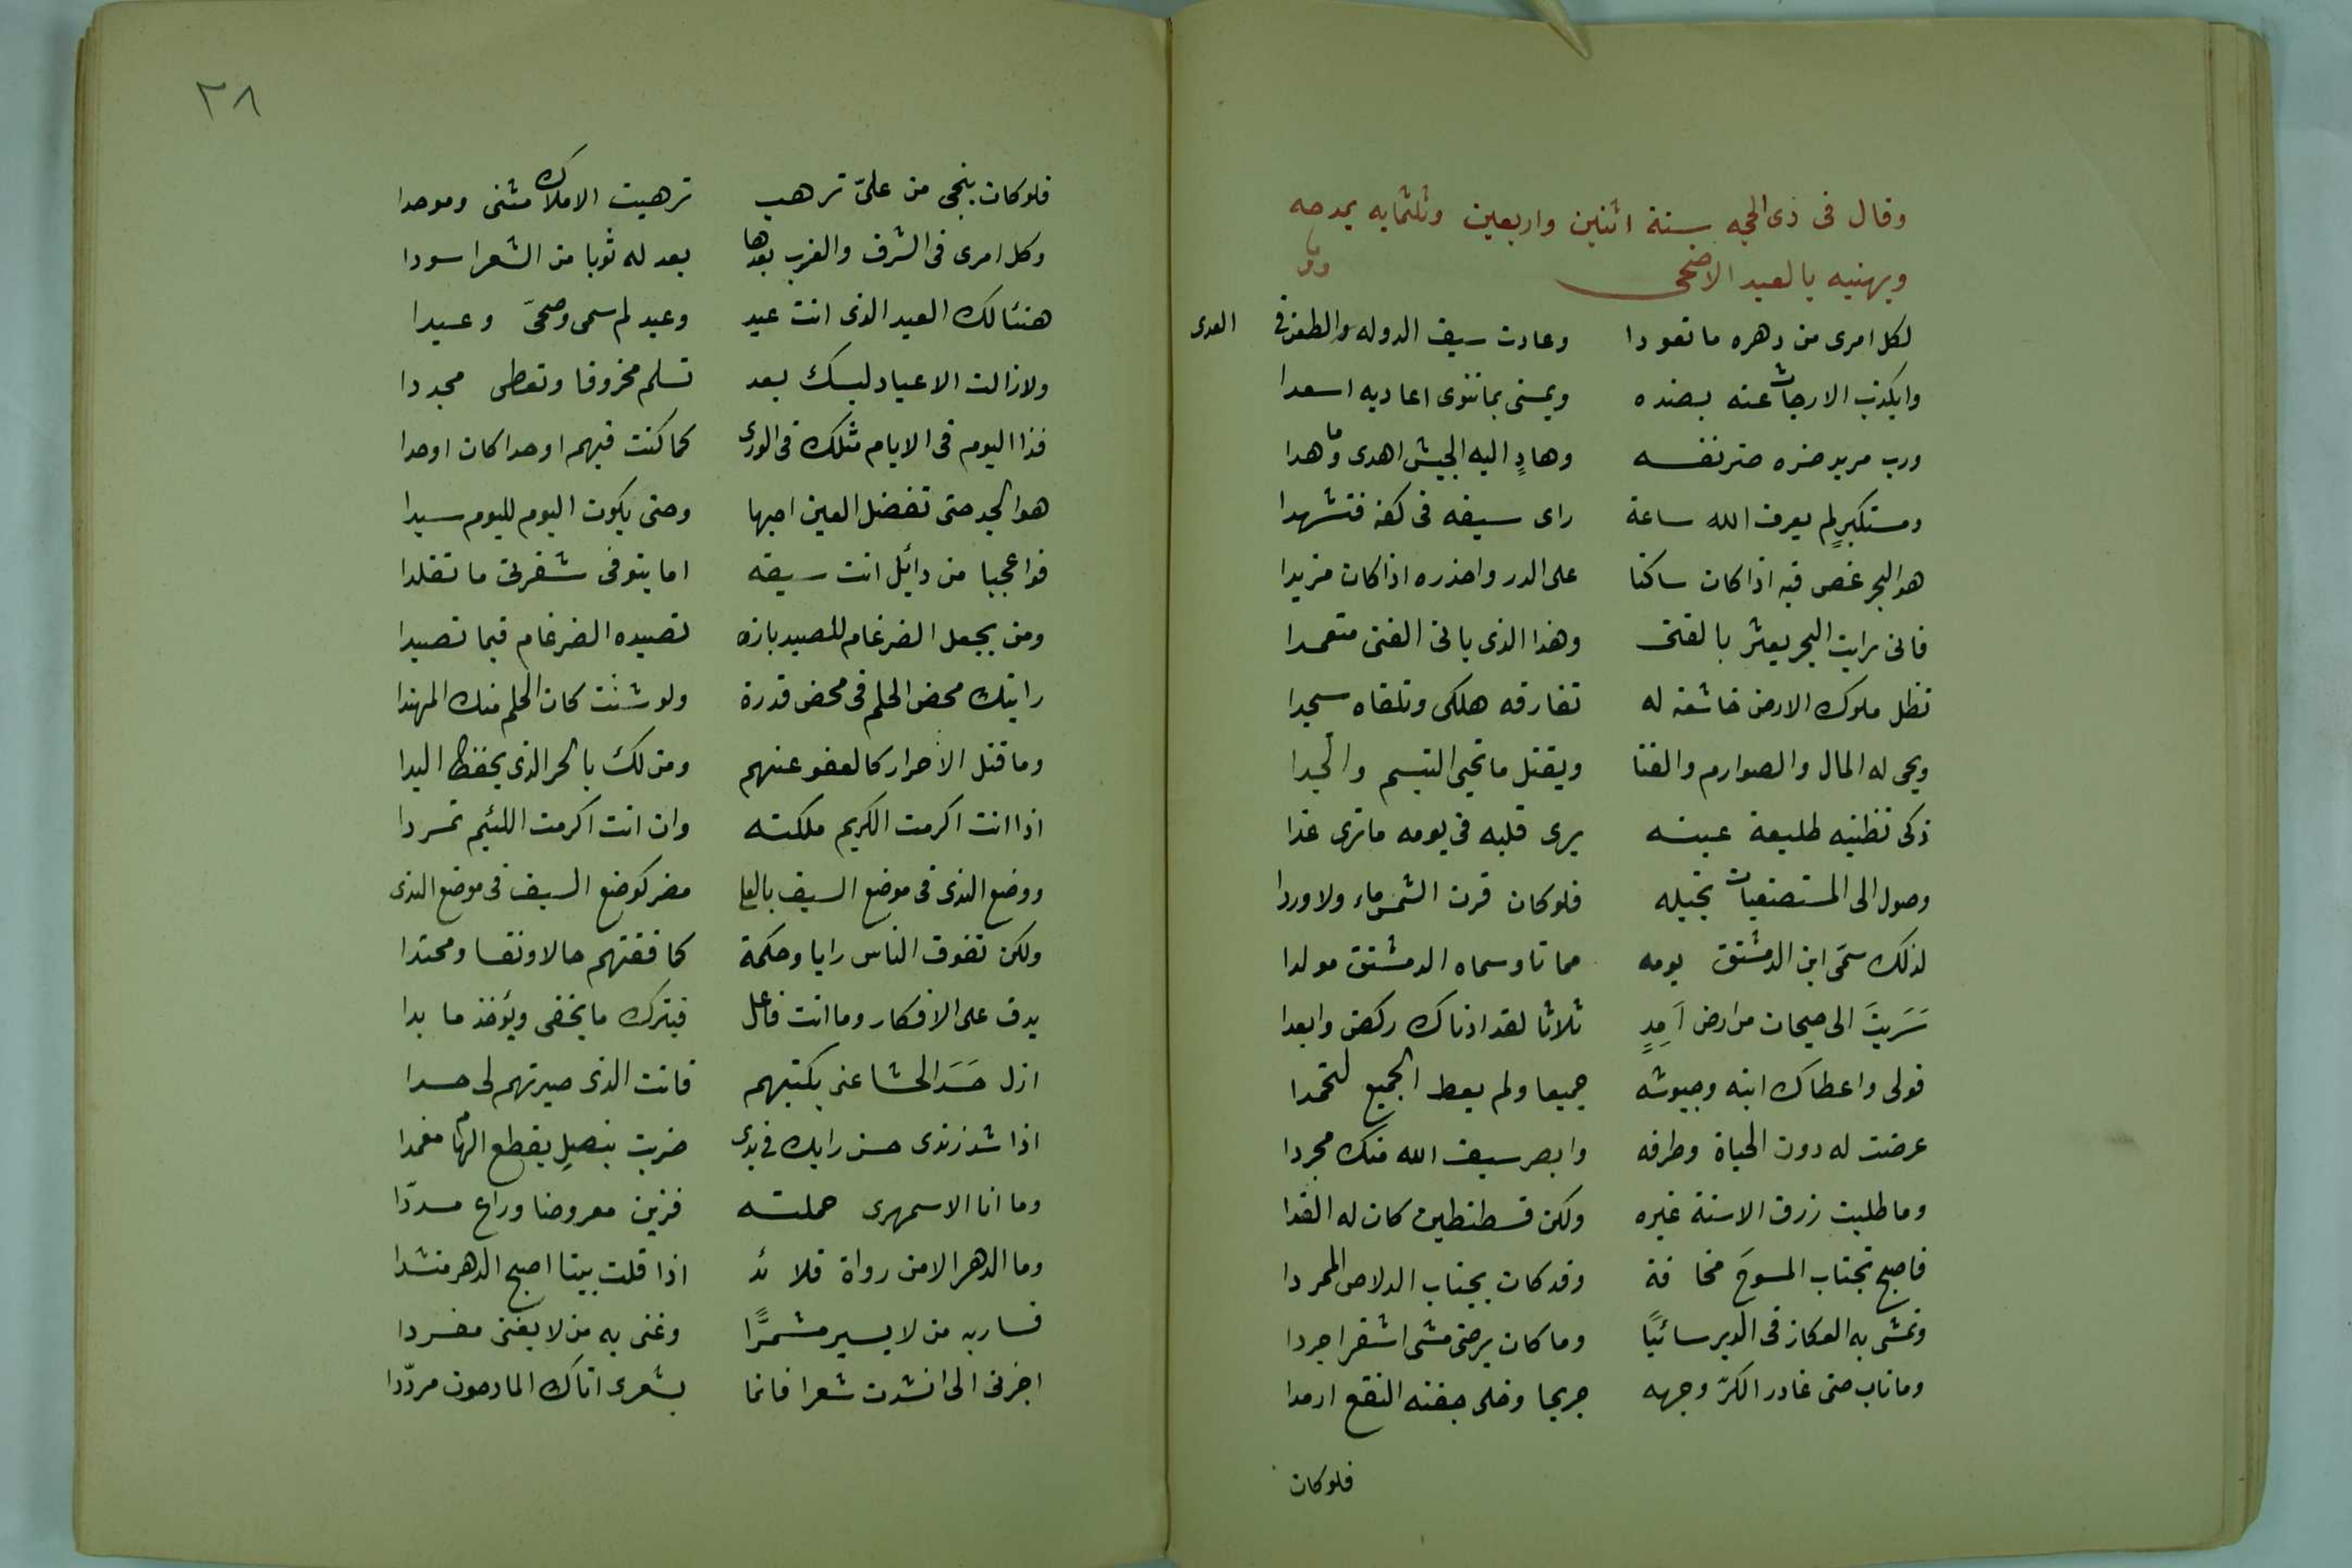 وقال فى ذى الحجه سنة اثنين واربعين وثلثمايه يمدحه
ويهنيه بالعيد الاضحى
لكل امرى من دهره ما تعودا وعادت سيف الدوله والطعن فى العدى
وايكذب الارجات عنه بضده ويمسى بما تنوى اعاديه اسعدا
ورب مريد ضره ضر نفسه وهادٍ اليه الجيش اهدى وما هدا
ومستكبرٍ لم يعرف الله ساعة راى سيفه فى كفه فتشهدا
هو البحر غص فيه اذا كان ساكنا على الدر واحذره اذا كان مزيدا
فانى رايت البحر يعثر بالفتى وهذا الذى ياتى الفتى متعمدا
تظل ملوك الارض خاشعة له تفارقه هلكى وتلقاه سجدا
ويحى له المال والصوارم والقنا ويقتل ما تحيى التبسم والجدا
ذكى تظنيه طليعة عينه يرى قلبه فى يومه ما ترى غدا
وصول الى المستصعبات بخيله فلو كان قرن الشمس ماء ولاوردا
لذلك سمّى ابن الدمشتق يومه مماتا وسماه الدمشتق مولدا
سَرَيتَ الى جيحان من ارض آمِدٍ ثلاثا لقد ادناك ركض وابعدا
فولى واعطاك ابنه وجيوشه جميعا ولم يعط الجميع لتحمدا
عرضت له دون الحياة وطرفه وابصر سيف الله منك مجردا
وما طلبت زرق الاسنة غيره ولكن قسطنطين كان له الفدا
فاصبح تجتاب المسوحَ مخافة وقد كان يجتاب الدلاص الممردا
وتمشى به العكاز فى الدير سائيًا وما كان يرضى مشى اشقر اجردا
وما تاب حتى غادر الكرّ وجهه جريحا وخلى جفنه النقع ارمدا
فلو كان
٣٨
فلو كان ينجى من علىّ ترهب ترهبت الاملاك مثنى وموحدا
وكل امرى فى الشرق والغرب بعدها يعد له ثوبا من الشعر اسودا
هنئا لك العيد الذى انت عيد وعيد لم سمى وضحىّ وعيدا
ولا زالت الاعياد لبسك بعد تسلم مخروقا وتعطى مجددا
فذا اليوم فى الايام مثلك فى الورى كما كنت فيهم اوحدا كان اوحدا
هو الجد حتى تفضل العين اختها وحتى يكون اليوم لليوم سيدا
فواعجبا من دائل انت سيفه اما يتوفى شفرتى ما تقلدا
ومن يجعل الضرغام للصيد بازه تصيده الضرغام فيما تصيدا
رايتك محض الحلم فى محض قدرة ولو شئت كان الحلم منك المهندا
وما قتل الاحرار كالعفو عنهم ومن لك بالحر الذى يحفظ اليدا
اذا انت اكرمت الكريم ملكته وان انت اكرمت اللئيم تمردا
ووضع الندى فى موضع السيف بالعلى مضر كوضع السيف فى موضع الندى
ولكن تفوق الناس رايا وحكمة كما فقتهم حالا ونفسا ومحتدا
يدق على الافكار وما انت فاعل فيترك ما يخفى ويؤخذ ما بدا
ازل حَسَدَ الحشا عنى بكتبهم فانت الذى صيرتهم لى حسدا
اذا شد زندى حسن رايك فى يدى ضربت بنصلٍ يقطع الهام مغمدا
وما انا الا سمهرى حملته فزين معروضا وراع مسدّدا
وما الدهر الا من رواة قلائد اذا قلت بيتا اصبح الدهر منشدا
فسار به من لا يسير مشمرًّا وغنى به من لا يغنى مغردا
اجزنى الى انشدت شعرا فانما بشعرى اتاك المادحون مردّدا